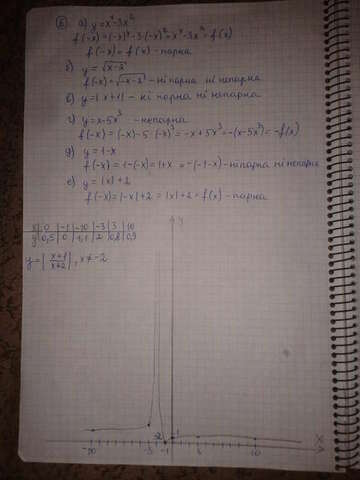 Б a) y=x⁴-3x²
f(-x)=(-x)⁴-3·(-x)²=x⁴-3x²=f(x)
f(-x)=f(x) - парна
б) y=√x-2
f(-x)=√-x-2 - ні парна ні непарна
в) y=|x+1| - ні парна ні непарна
г) y=x-5x³ - непарна
f(-x)=(-x)-5·(-x)³=-x+5x³=-(x-5x³)=-f(x)
д) y=1-x
f(-x)=1-(-x)=1+x=-(-1-x) - ні парна ні непарна
е) y=|x|+2
f(-x)=|-x|+2=|x|+2=f(x) - парна
x 0 -1 -10 -3 3 10
y 0,5 0 1,1 2 0,8 0,9
y=|x+1/x+2|, x≠-2
y
x
-10 -3 -2 -1 1 10